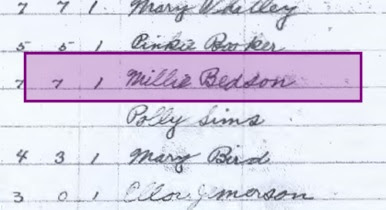 7 7 1 Mary Whatley
5 5 1 Pinkie Booker
7 7 1 Millie Bedson
Polly Sims
4 3 1 Mary Bird
3 0 1 Ellar Jemerson